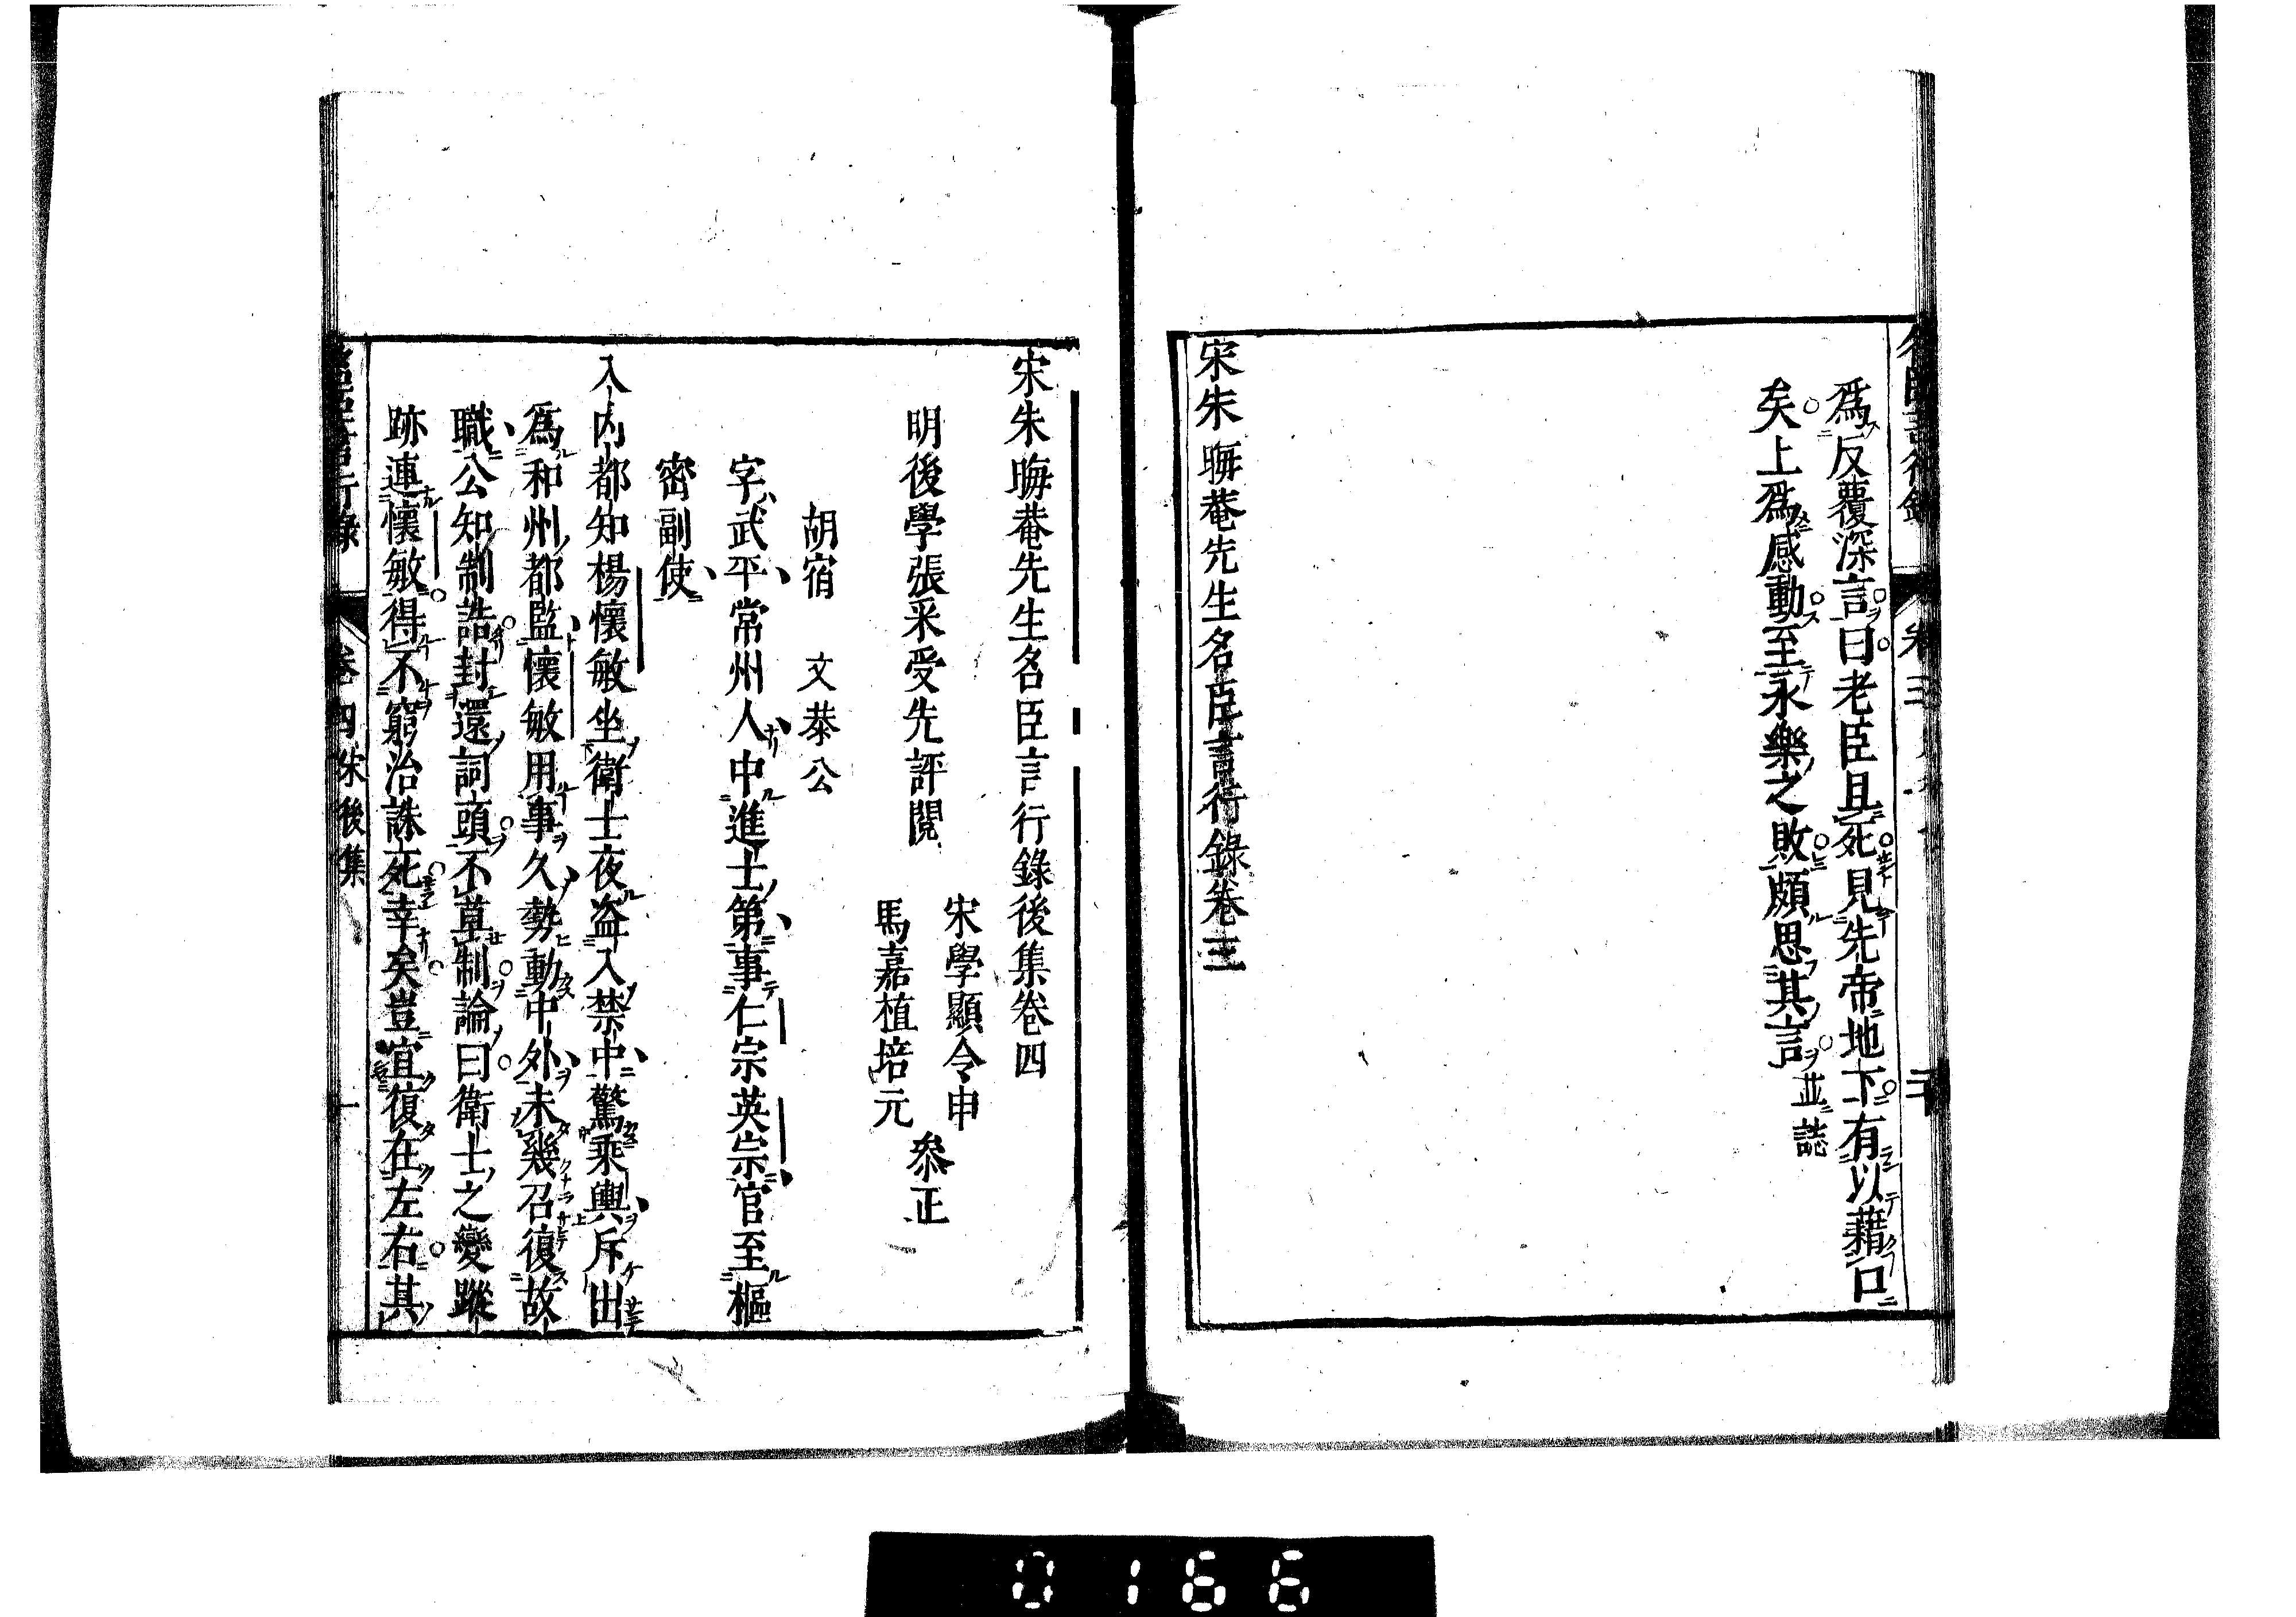 爲反覆深言曰老臣且死見先帝地下有以藉口
矣上爲感動至永樂之敗頗思其言 並誌
宋朱晦菴先生名臣言行錄卷三
宋朱晦菴先生名臣言行錄後集卷四
宋學顯令申
明後學張采受先評閱
馬嘉植培元
叅正
胡宿 文恭公
字武平常州人中進士第事仁宗英宗官至樞
密副使
入內都知楊懷敏坐衛士夜盜入禁中驚乘輿斥出
爲和州都監懷敏用事久勢動中外未幾召復故
職公知制誥封還詞頭不草制論曰衛士之變蹤
跡連懷敏得不窮治誅死幸矣豈宜復在左右其
卷四 朱後集 一
0166